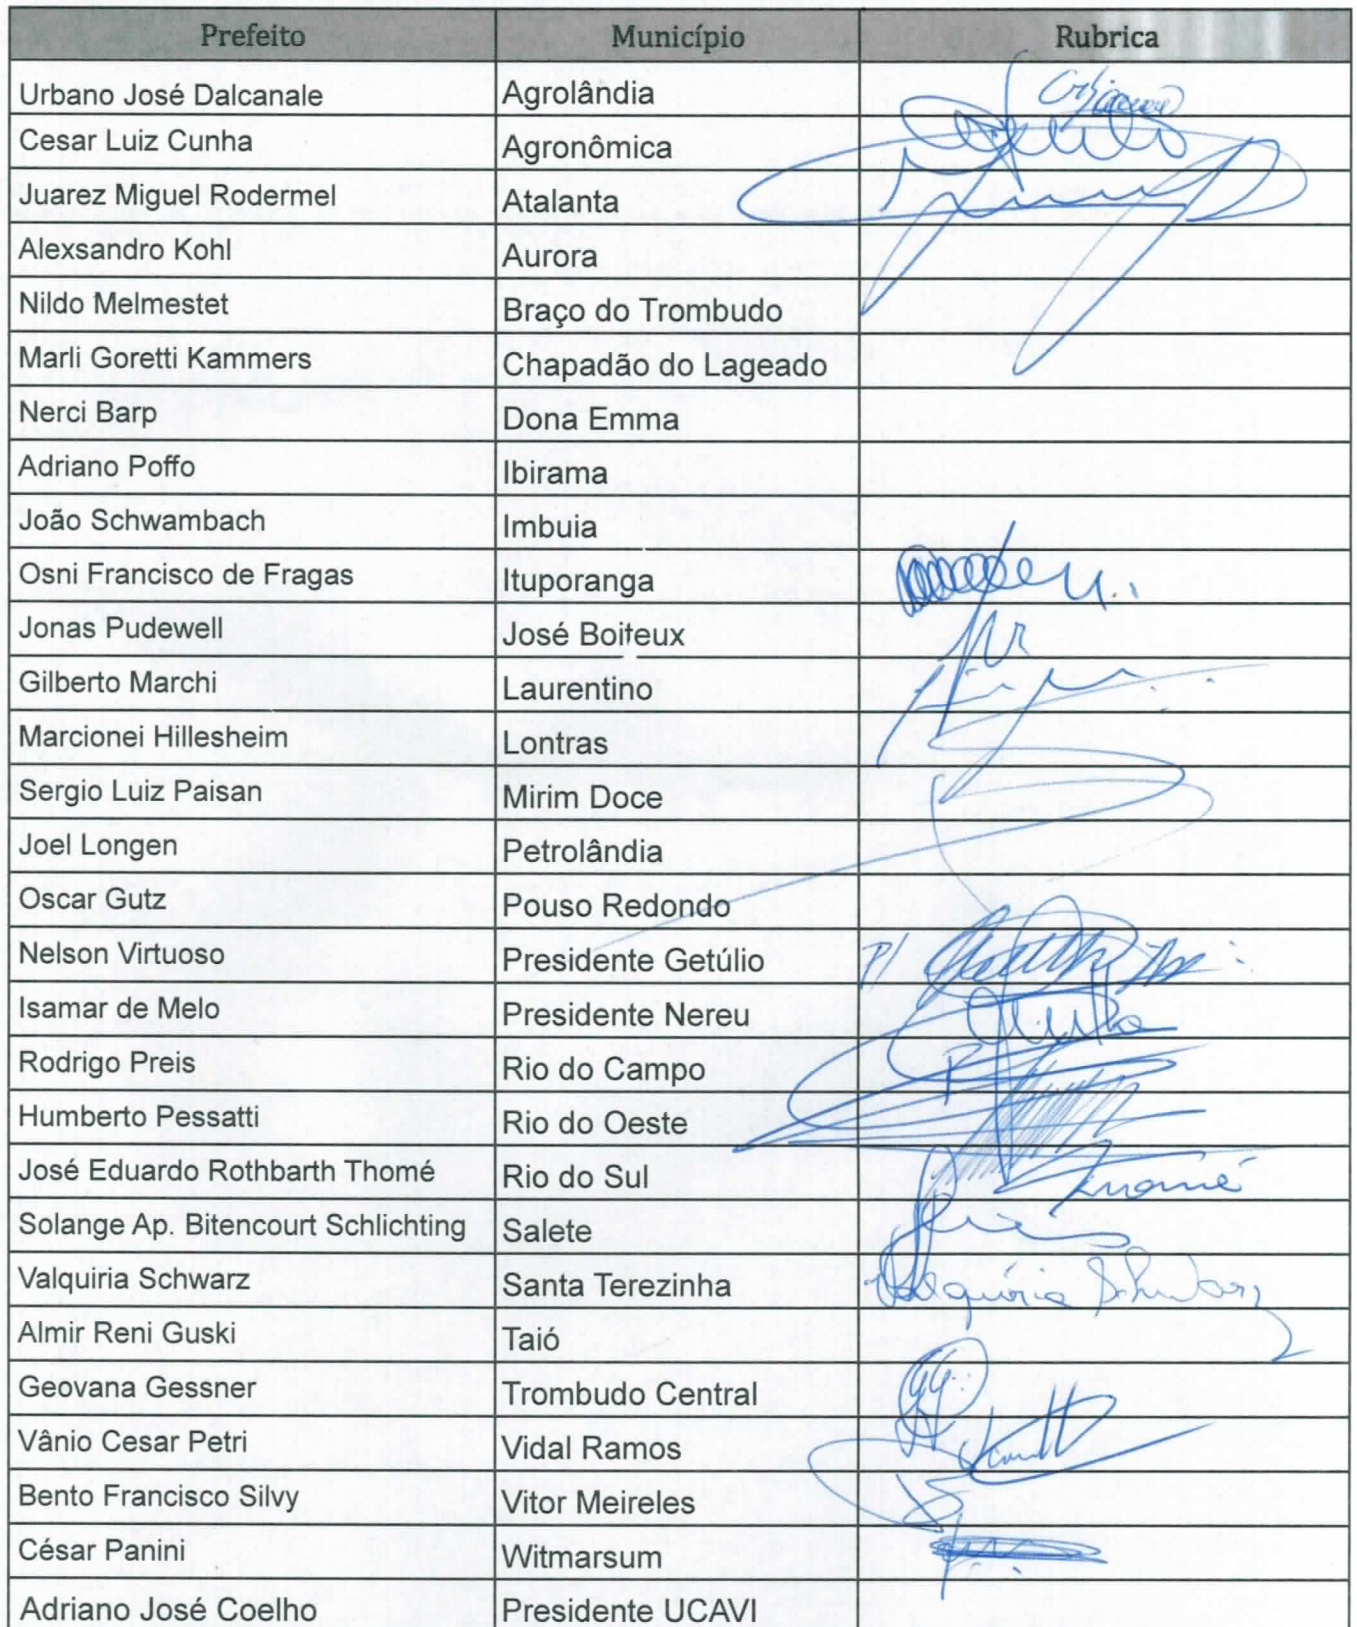 Prefeito Município Rubrica
Urbano José Dalcanale Agrolândia
Cesar Luiz Cunha Agronômica
Juarez Miguel Rodermel Atalanta
Alexsandro Kohl Aurora
Nildo Melmestet Braço do Trombudo
Marli Goretti Kammers Chapadão do Lageado
Nerci Barp Dona Emma
Adriano Poffo Ibirama
João Schwambach Imbuia
Osni Francisco de Fragas Ituporanga
Jonas Pudewell José Boiteux
Gilberto Marchi Laurentino
Marcionei Hillesheim Lontras
Sergio Luiz Paisan Mirim Doce
Joel Longen Petrolândia
Oscar Gutz Pouso Redondo
Nelson Virtuoso Presidente Getúlio P/
Isamar de Melo Presidente Nereu
Rodrigo Preis Rio do Campo
Humberto Pessatti Rio do Oeste
José Eduardo Rothbarth Thomé Rio do Sul
Solange Ap. Bitencourt Schlichting Salete
Valquiria Schwarz Santa Terezinha Valquíria Schwarz
Almir Reni Guski Taió
Geovana Gessner Trombudo Central
Vânio Cesar Petri Vidal Ramos
Bento Francisco Silvy Vitor Meireles
César Panini Witmarsum
Adriano José Coelho Presidente UCAVI